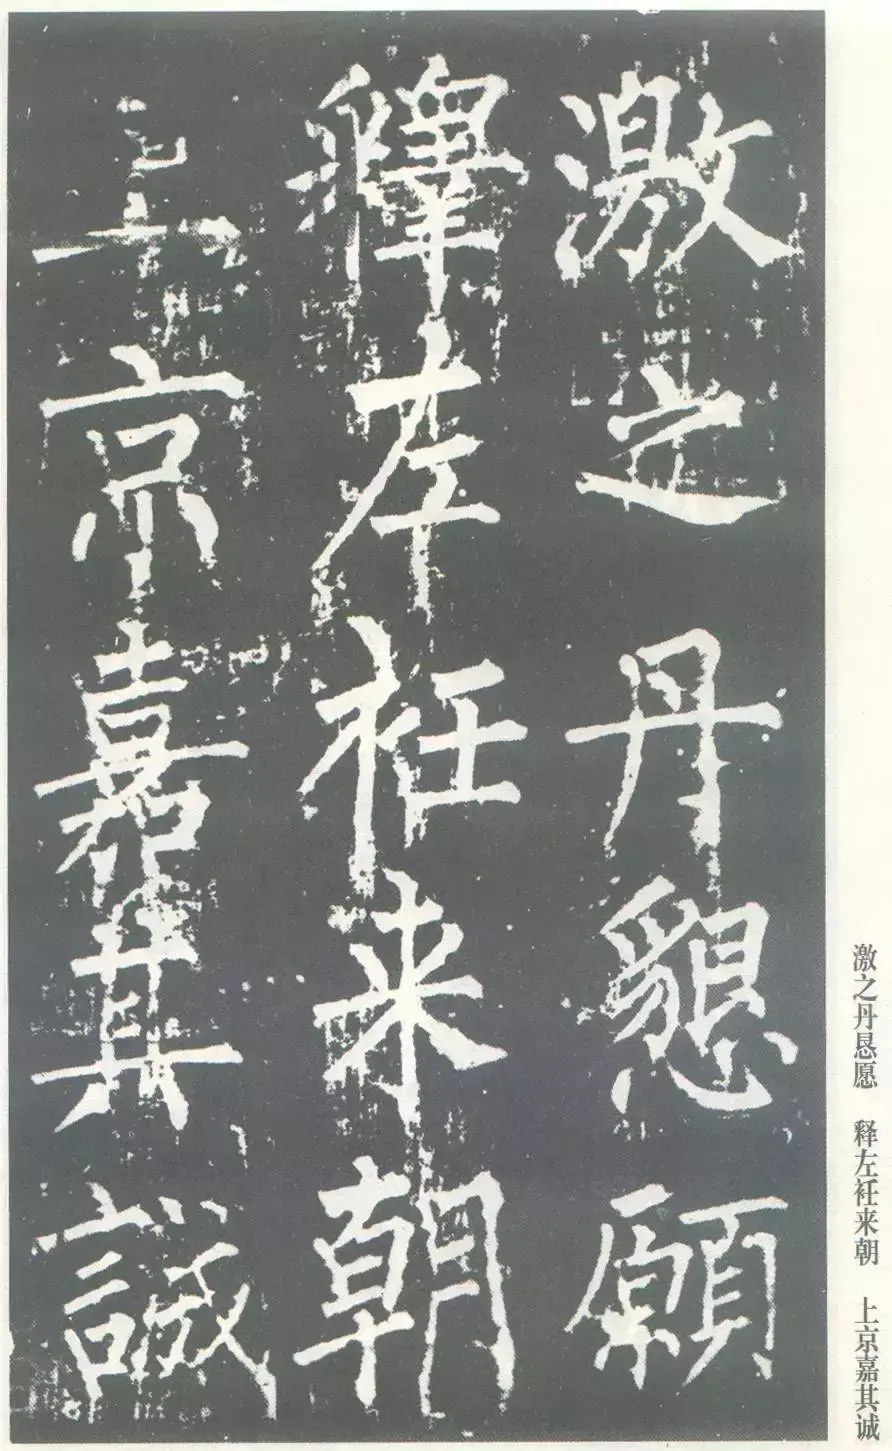 激之丹懇願
釋左衽来朝
上京嘉其誠
激之丹恳愿 释左衽来朝 上京嘉其诚